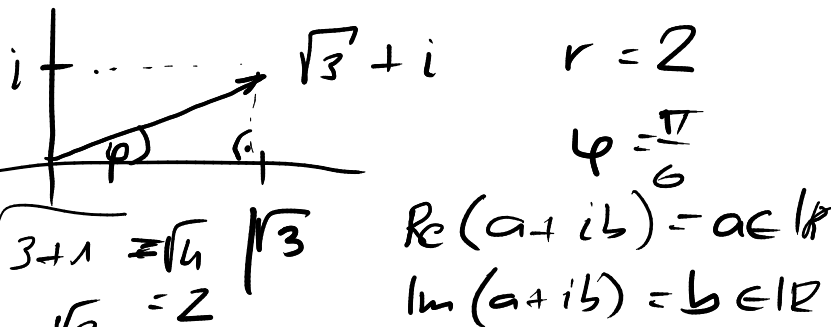 i
√3 + i
r = 2
φ
φ = π/6
√3
√3+1 = √4
= 2
Re(a+ib) = a ∈ ℝ
Im(a+ib) = b ∈ ℝ